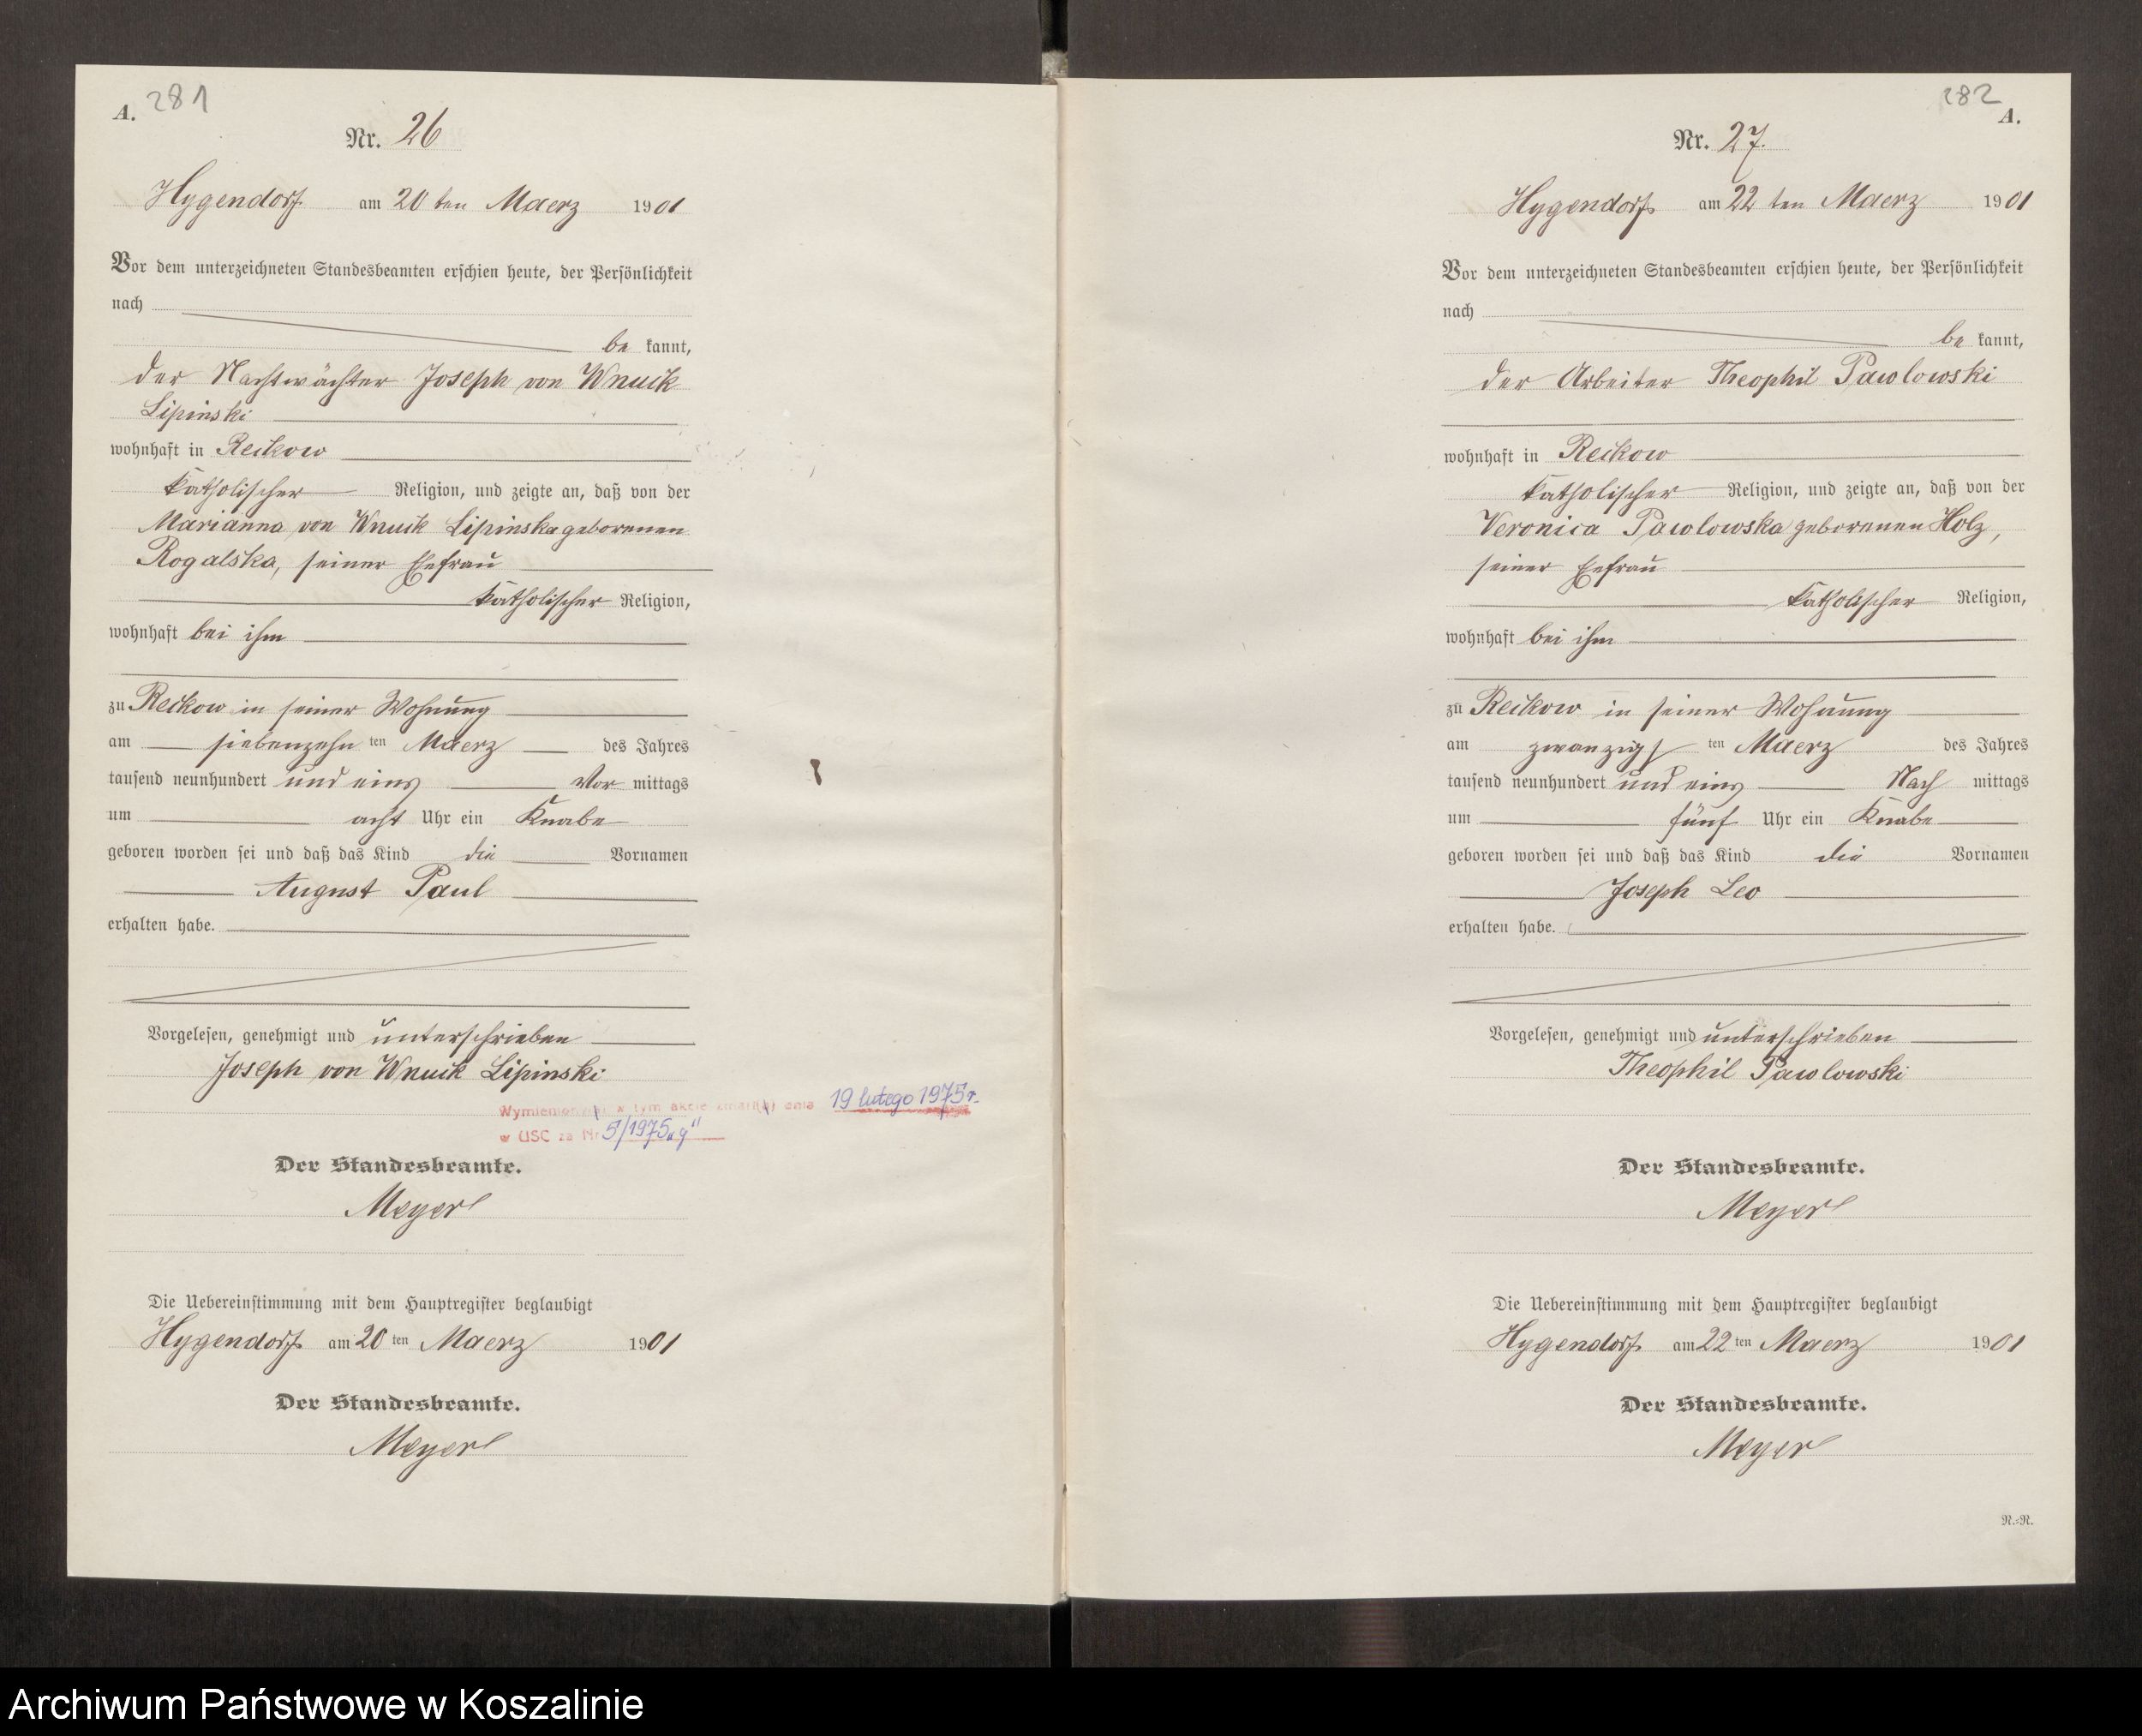 A.
281
Nr. 26
Hygendorf am 20 ten Maerz 1901
Vor dem unterzeichneten Standesbeamten erschien heute, der Persönlichkeit
nach
be kannt,
der Nachtwächter Joseph von Wnuck
Lipinski
wohnhaft in Reckow
katholischer Religion, und zeigte an, daß von der
Marianna von Wnuck Lipinska geborenen
Rogalska, seiner Ehefrau
katholischer Religion,
wohnhaft bei ihm
zu Reckow in seiner Wohnung
am siebenzehn ten Maerz des Jahres
tausend neunhundert und eins Vor mittags
um acht Uhr ein Knabe
geboren worden sei und daß das Kind die Vornamen
August Paul
erhalten habe.
Vorgelesen, genehmigt und unterschrieben
Joseph von Wnuck Lipinski
w tym akcie zmarł(a) dnia 19 lutego 1975 r.
w USC za Nr 5/1975 „g"
Der Standesbeamte.
Meyer
Die Uebereinstimmung mit dem Hauptregister beglaubigt
Hygendorf am 20 ten Maerz 1901
Der Standesbeamte.
Meyer
282
A.
Nr. 27.
Hygendorf am 22 ten Maerz 1901
Vor dem unterzeichneten Standesbeamten erschien heute, der Persönlichkeit
nach
be kannt,
der Arbeiter Theophil Pawlowski
wohnhaft in Reckow
katholischer Religion, und zeigte an, daß von der
Veronica Pawlowska geborenen Holz,
seiner Ehefrau
katholischer Religion,
wohnhaft bei ihm
zu Reckow in seiner Wohnung
am zwanzigs ten Maerz des Jahres
tausend neunhundert und eins Nach mittags
um fünf Uhr ein Knabe
geboren worden sei und daß das Kind die Vornamen
Joseph Leo
erhalten habe.
Vorgelesen, genehmigt und unterschrieben
Theophil Pawlowski
Der Standesbeamte.
Meyer
Die Uebereinstimmung mit dem Hauptregister beglaubigt
Hygendorf am 22 ten Maerz 1901
Der Standesbeamte.
Meyer
N.-R.
Archiwum Państwowe w Koszalinie